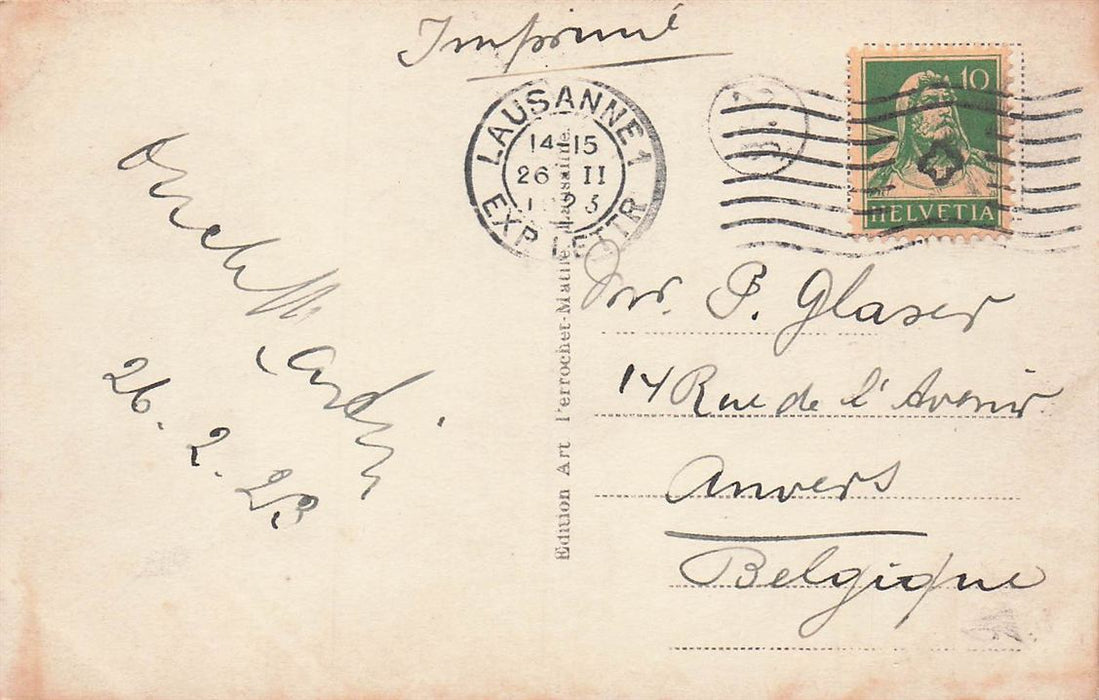 Imprimé
LAUSANNE 1
14-15
26 II
1923
EXP. LETTR
10
HELVETIA
P. Glaser
14 Rue de l'Avenir
Anvers
Belgique
26. 2. 23
Edition Art Perrochet-Matile, Lausanne.